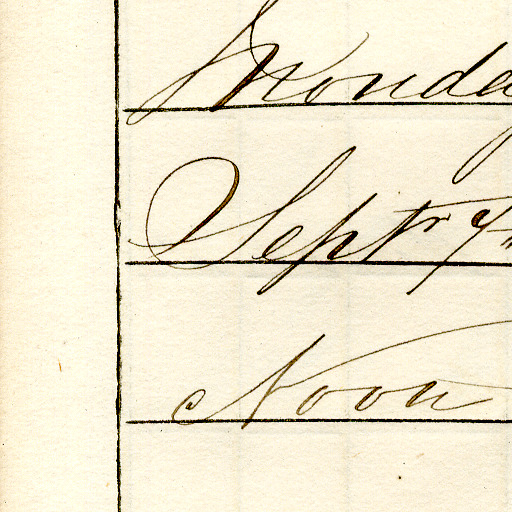 Monday
Septr 7th
Noon